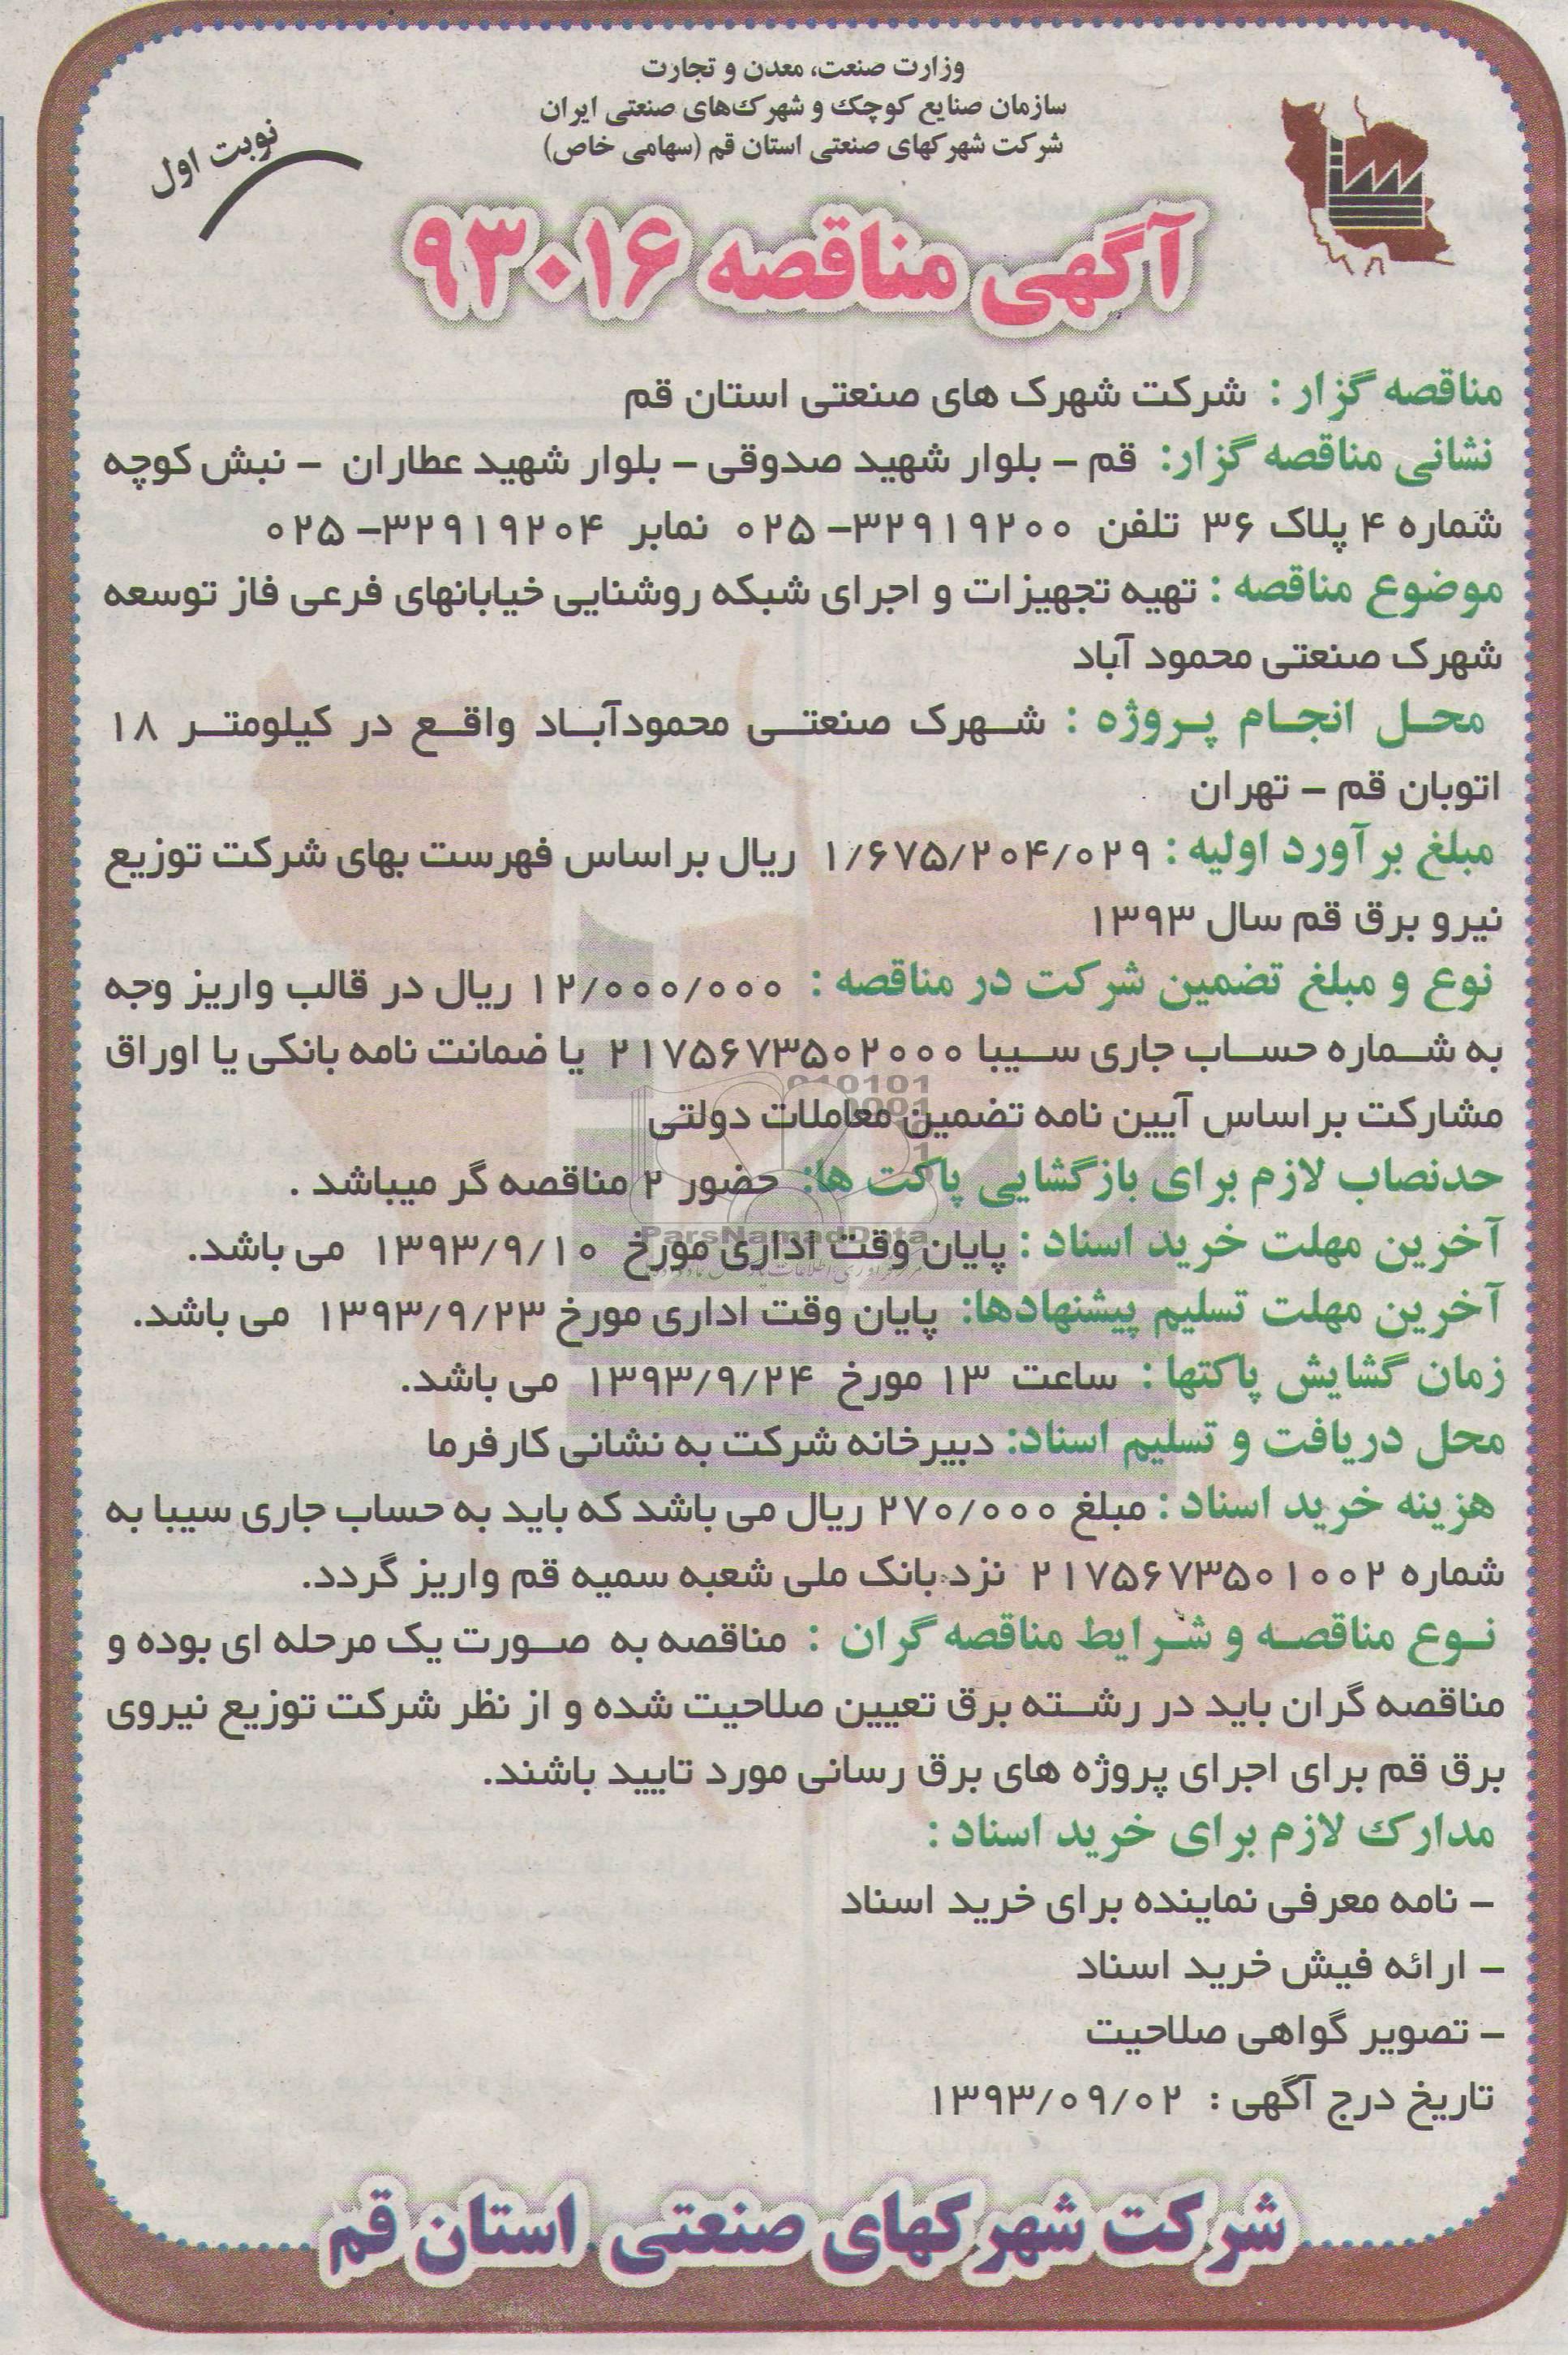 وزارت صنعت، معدن و تجارت
سازمان صنایع کوچک و شهرک‌های صنعتی ایران
شرکت شهرکهای صنعتی استان قم (سهامی خاص)
نوبت اول
آگهی مناقصه ۹۳۰۱۶
مناقصه گزار : شرکت شهرک های صنعتی استان قم
نشانی مناقصه گزار: قم – بلوار شهید صدوقی – بلوار شهید عطاران – نبش کوچه
شماره ۴ پلاک ۳۶ تلفن ۳۲۹۱۹۲۰۰– ۰۲۵ نمابر ۳۲۹۱۹۲۰۴– ۰۲۵
موضوع مناقصه : تهیه تجهیزات و اجرای شبکه روشنایی خیابانهای فرعی فاز توسعه
شهرک صنعتی محمود آباد
محل انجام پروژه : شهرک صنعتی محمودآباد واقع در کیلومتر ۱۸
اتوبان قم – تهران
مبلغ برآورد اولیه : ۱/۶۷۵/۲۰۴/۰۲۹ ریال براساس فهرست بهای شرکت توزیع
نیرو برق قم سال ۱۳۹۳
نوع و مبلغ تضمین شرکت در مناقصه : ۱۲/۰۰۰/۰۰۰ ریال در قالب واریز وجه
به شماره حساب جاری سیبا ۲۱۷۵۶۷۳۵۰۲۰۰۰ یا ضمانت نامه بانکی یا اوراق
مشارکت براساس آیین نامه تضمین معاملات دولتی
حدنصاب لازم برای بازگشایی پاکت ها: حضور ۲ مناقصه گر میباشد .
آخرین مهلت خرید اسناد : پایان وقت اداری مورخ ۱۳۹۳/۹/۱۰ می باشد.
ParsNamadData
آخرین مهلت تسلیم پیشنهادها: پایان وقت اداری مورخ ۱۳۹۳/۹/۲۳ می باشد.
زمان گشایش پاکتها : ساعت ۱۳ مورخ ۱۳۹۳/۹/۲۴ می باشد.
محل دریافت و تسلیم اسناد: دبیرخانه شرکت به نشانی کارفرما
هزینه خرید اسناد : مبلغ ۲۷۰/۰۰۰ ریال می باشد که باید به حساب جاری سیبا به
شماره ۲۱۷۵۶۷۳۵۰۱۰۰۲ نزد بانک ملی شعبه سمیه قم واریز گردد.
نوع مناقصه و شرایط مناقصه گران : مناقصه به صورت یک مرحله ای بوده و
مناقصه گران باید در رشته برق تعیین صلاحیت شده و از نظر شرکت توزیع نیروی
برق قم برای اجرای پروژه های برق رسانی مورد تایید باشند.
مدارک لازم برای خرید اسناد :
– نامه معرفی نماینده برای خرید اسناد
– ارائه فیش خرید اسناد
– تصویر گواهی صلاحیت
تاریخ درج آگهی : ۱۳۹۳/۰۹/۰۲
شرکت شهرکهای صنعتی استان قم